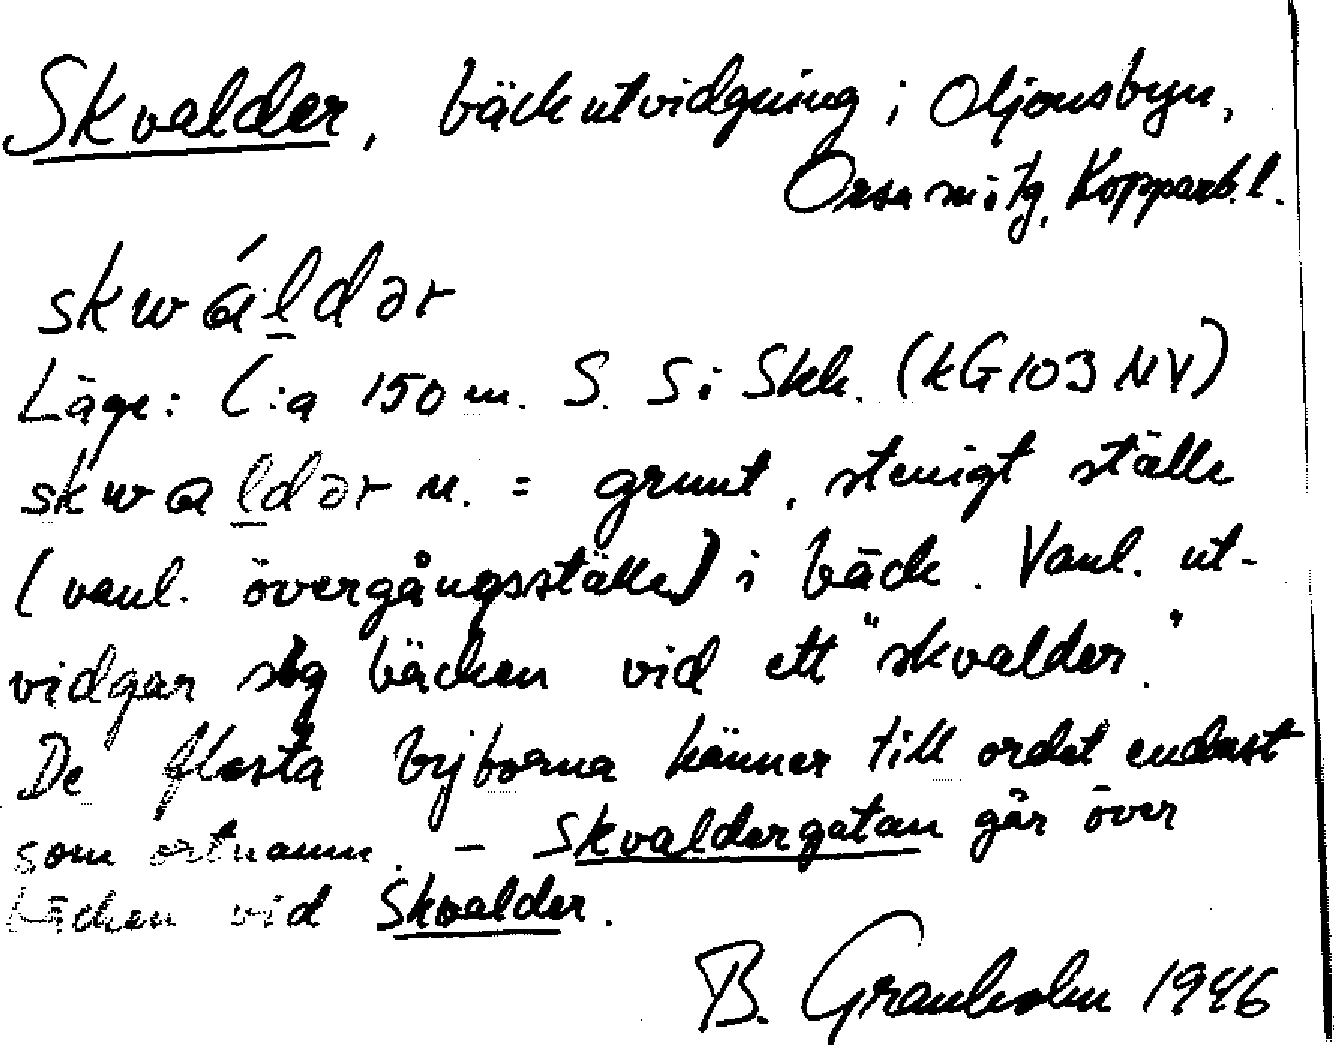 Skvalder, bäckutvidgning i Oljonsbyn,
Orsa m:tg, Kopparb.l.
skwáḻdər
Läge: C:a 150 m. S. S i Skh. (kG 103 NV)
skwaḻdər n. = grunt, stenigt ställe
(vanl. övergångsställe) i bäck. Vanl. ut-
vidgar sig bäcken vid ett "skvalder."
De flesta byborna känner till ordet endast
som ortnamn. - Skvaldergatan går över
bäcken vid Skvalder.
B. Granholm 1946